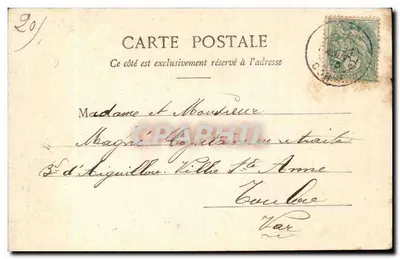 20)
CARTE POSTALE
Ce côté est exclusivement réservé à l'adresse
Madame et Monsieur
Magné Capitaine en retraite
Bd d'Aiguillon. Villa Ste Anne
Toulon
Var
CPAPHIL